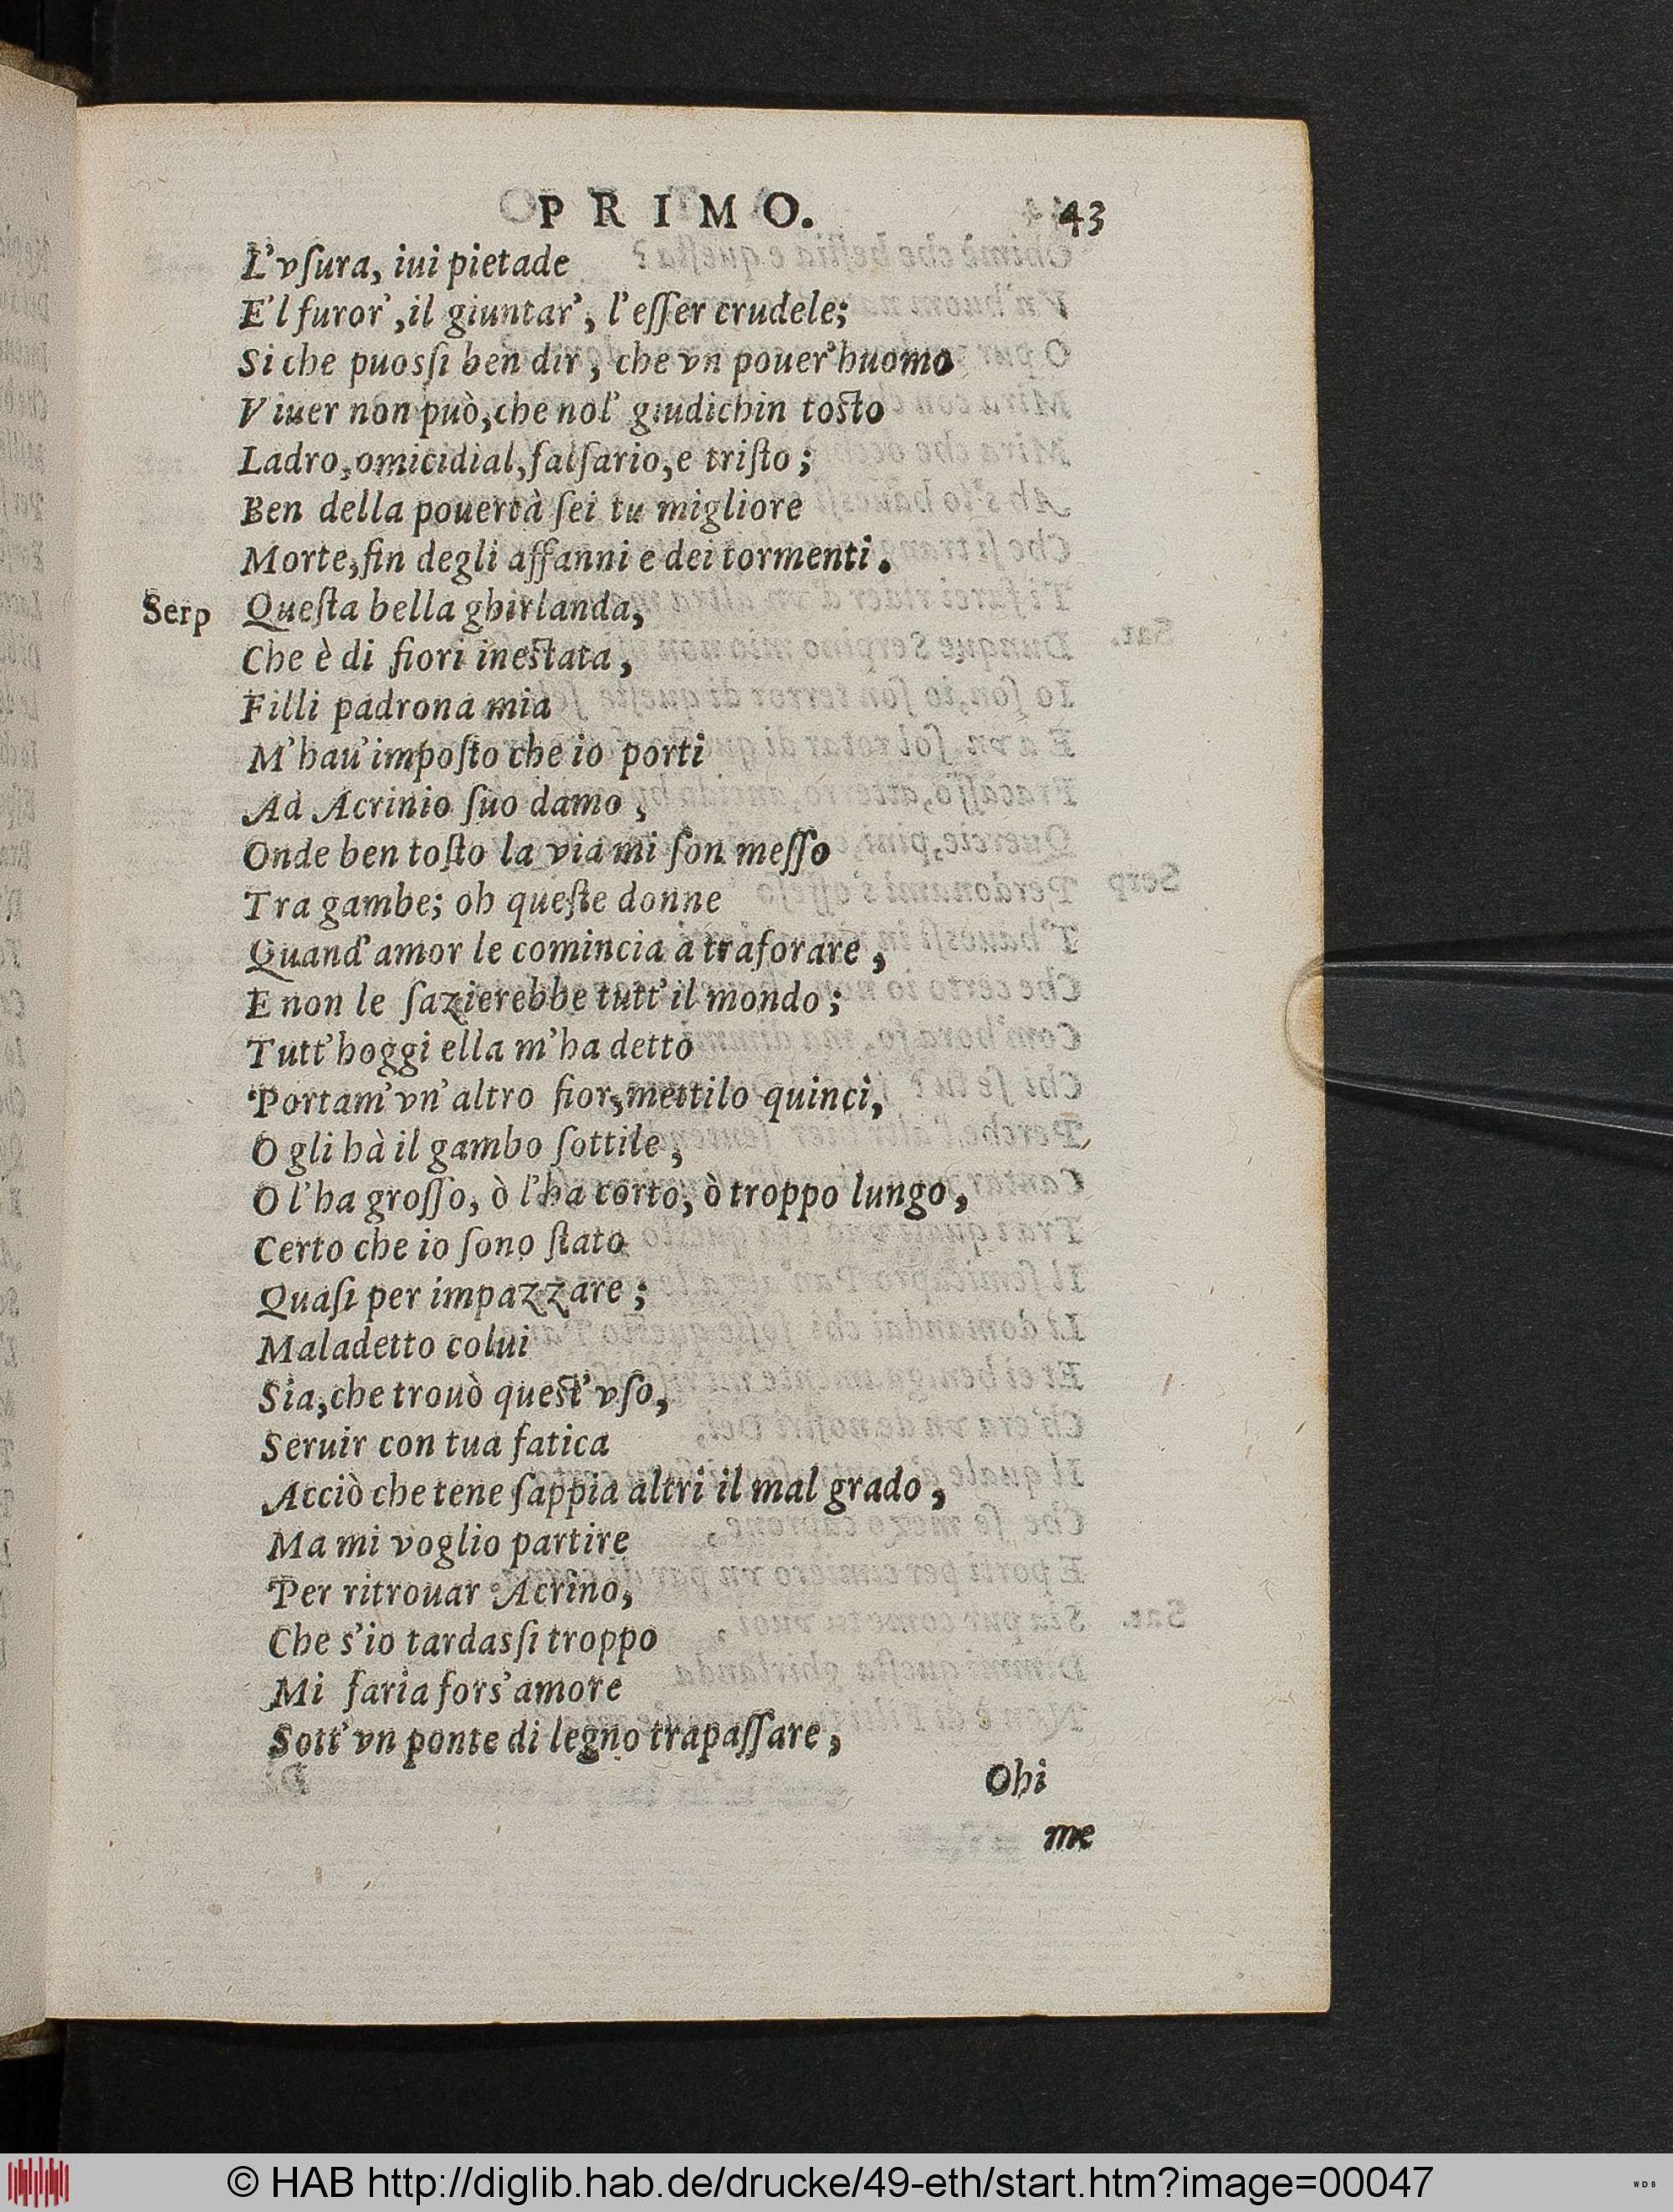 PRIMO. 43
L'vſura, iui pietade
E'l furor', il giuntar', l'eſſer crudele;
Si che puosſi ben dir, che vn pouer'huomo
Viuer non può, che nol' giudichin toſto
Ladro, omicidial, falſario, e triſto;
Ben della pouertà ſei tu migliore
Morte, fin degli affanni e dei tormenti.
Serp Queſta bella ghirlanda,
Che è di fiori ineſtata,
Filli padrona mia
M'hau'impoſto che io porti
Ad Acrinio ſuo damo,
Onde ben toſto la via mi ſon meſſo
Tra gambe; oh queſte donne
Quand'amor le comincia a traforare,
E non le ſazierebbe tutt'il mondo;
Tutt'hoggi ella m'ha detto
Portam'vn'altro fior, mettilo quinci,
O gli hà il gambo ſottile,
O l'ha groſſo, ò l'ha corto, ò troppo lungo,
Certo che io ſono ſtato
Quaſi per impazzare;
Maladetto colui
Sia, che trouò queſt'vſo,
Seruir con tua fatica
Acciò che tene ſappia altri il mal grado,
Ma mi voglio partire
Per ritrouar Acrino,
Che s'io tardasſi troppo
Mi faria fors'amore
Sott'vn ponte di legno trapaſſare,
Ohi
me
© HAB http://diglib.hab.de/drucke/49-eth/start.htm?image=00047
WDB